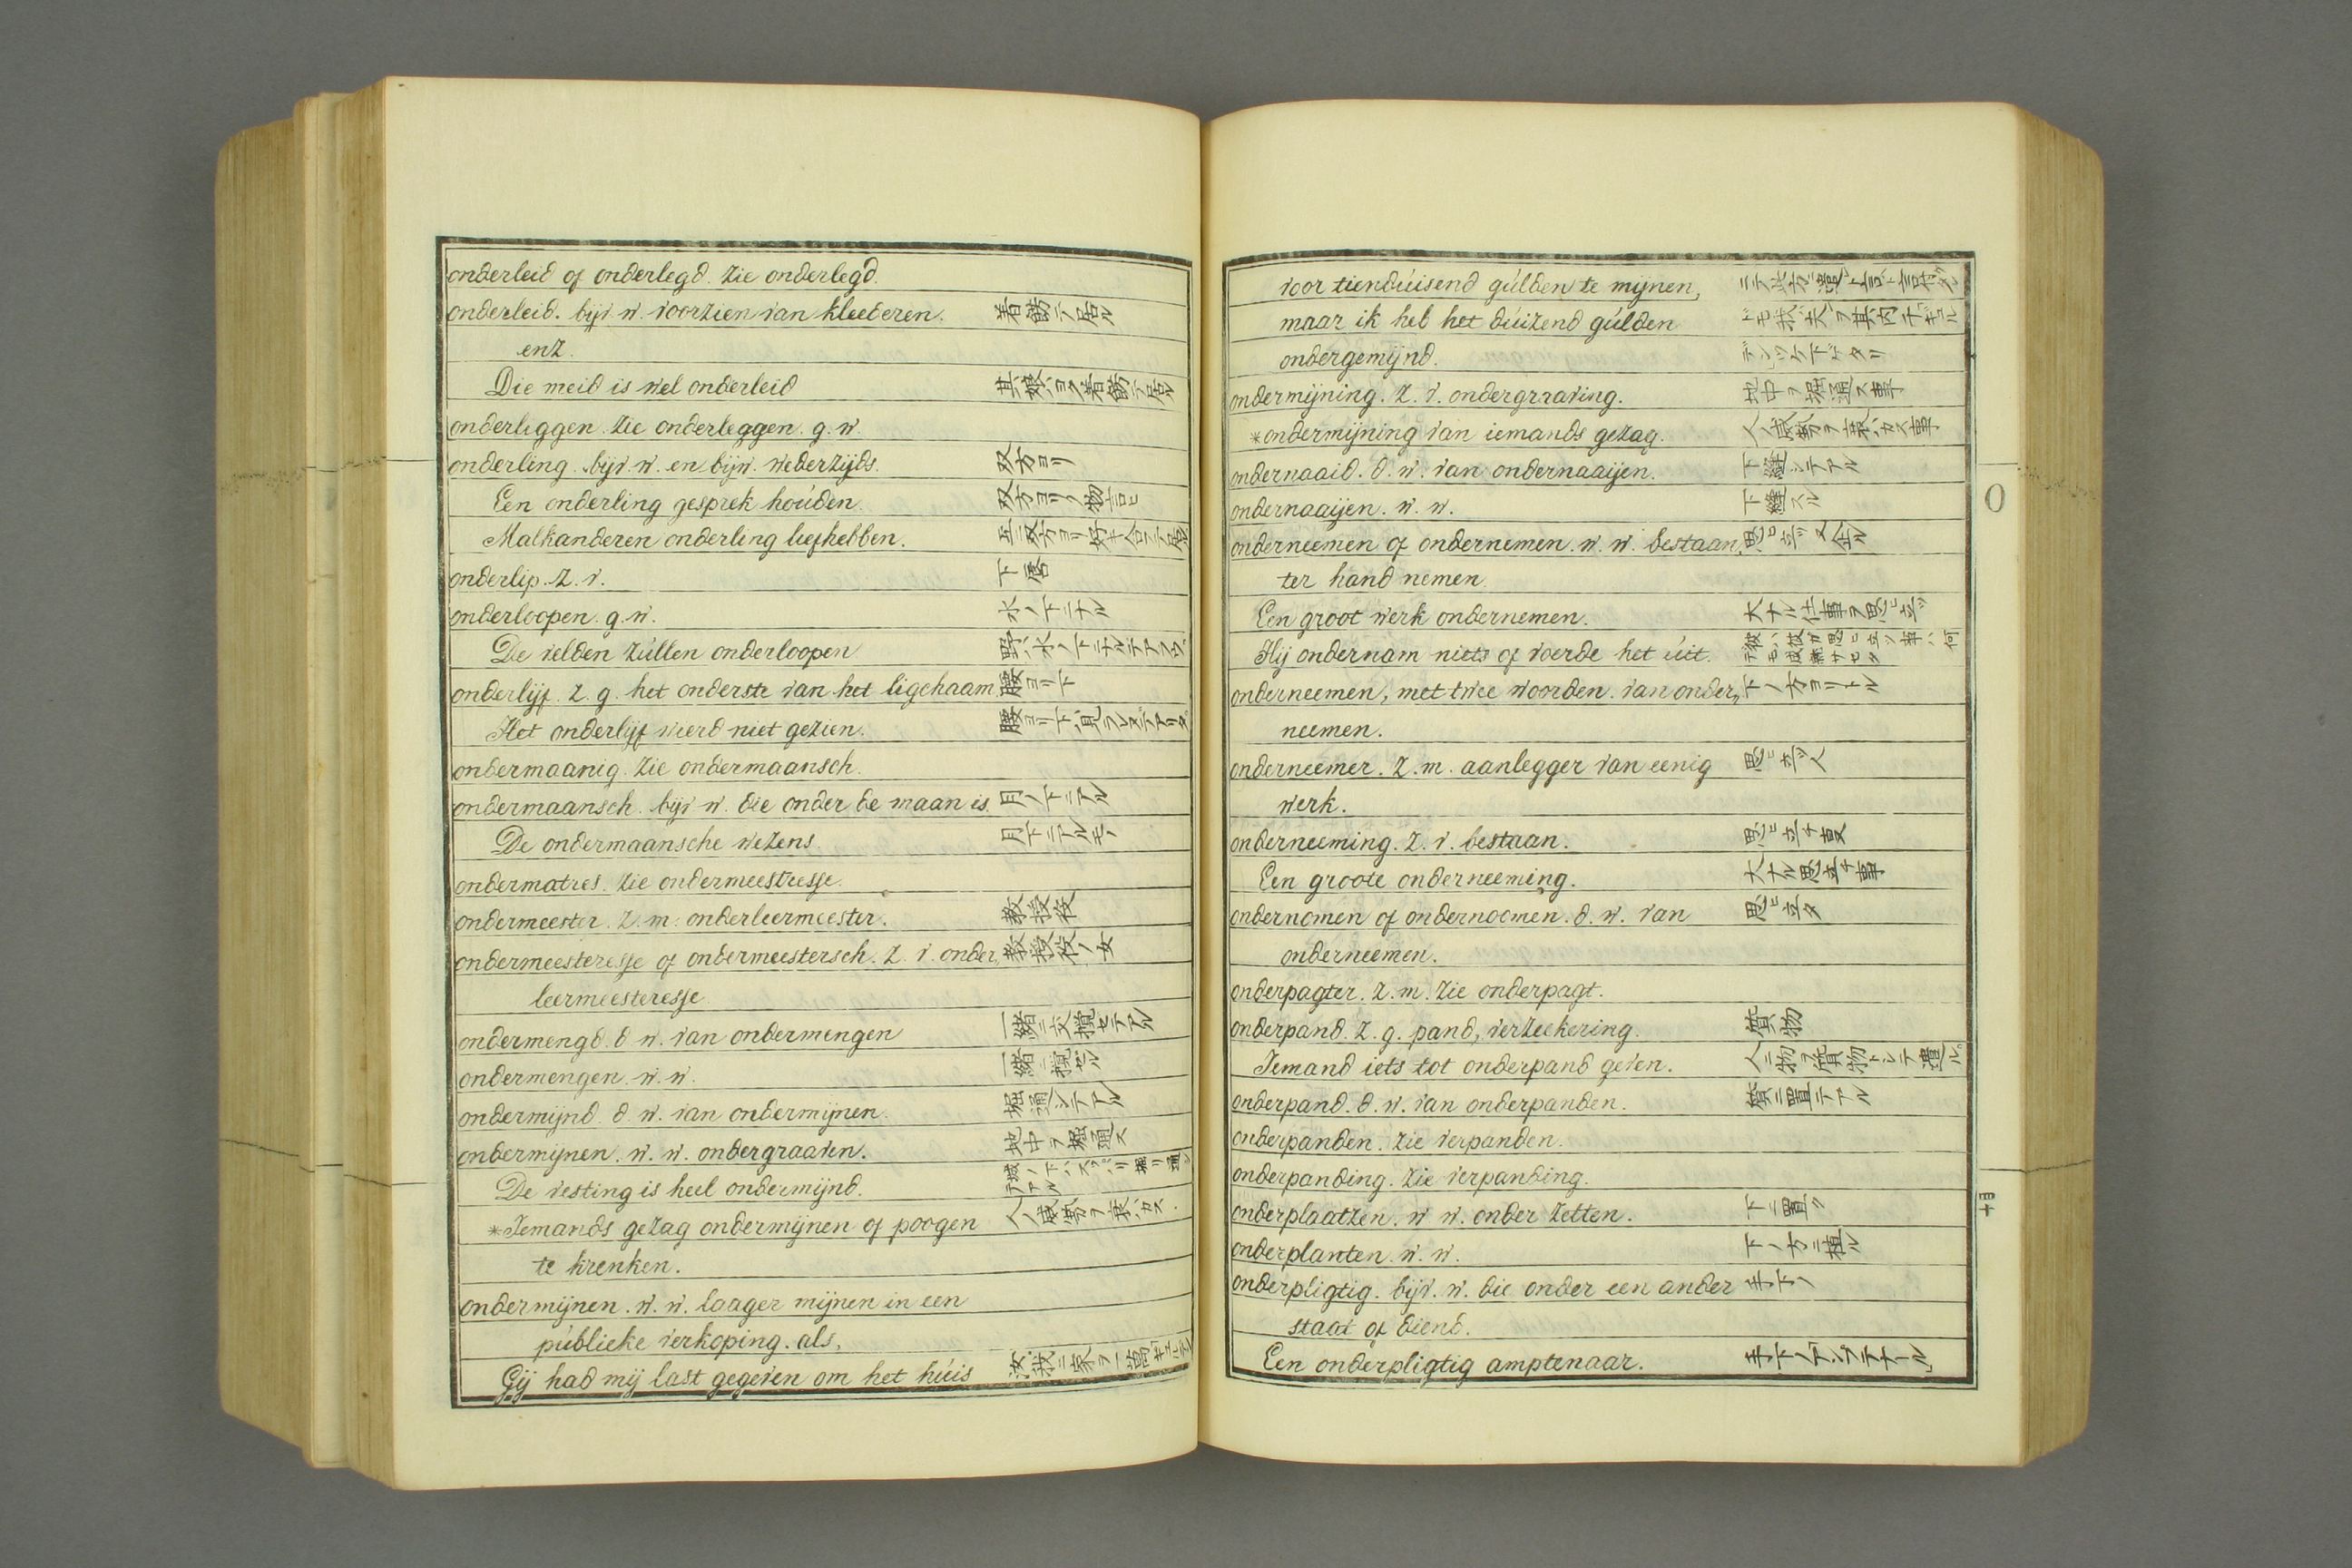 onderleid of onderlegd. zie onderlegd.
onderleid. bijv w. voorzien van kleederen. 着餝テ居ル
enz.
Die meid is wel onderleid 其娘ハヨク着餝テ居ル
onderleggen. zie onderleggen. g. w.
onderling. bijv w. en bijw. wederzijds. 双方ヨリ
Een onderling gesprek houden. 双方ヨリノ物言ヒ
Malkanderen onderling liefhebben. 互ニ双方ヨリ好キ合ニテ居ル
onderlip. z. v. 下唇
onderloopen. g. w. 水ノ下ニナル
De velden zullen onderloopen 野ハ水ノ下ニナルデアロウ
onderlijf. z. g. het onderste van het ligchaam 腰ヨリ下
Het onderlijf wierd niet gezien. 腰ヨリ下ハ見ラレズデアリタ
ondermaanig. zie ondermaansch.
ondermaansch. bijv w. die onder de maan is. 月ノ下ニアル
De ondermaansche wezens. 月下ニアルモノ
ondermatres. zie ondermeestresse.
ondermeester. z. m. onderleermeester. 教授役
ondermeesteresse of ondermeestersch. z. v. onder, 教授役ノ女
leermeesteresse
ondermengd. d w. van ondermengen 一緒ニ交攪セテアル
ondermengen. w. w. 一緒ニ攪ゼル
ondermijnd. d w. van ondermijnen. 堀通シテアル
ondermijnen. w. w. ondergraaven. 地中ヲ堀通ス
De vesting is heel ondermijnd. 城ノ下ハスッパリ掘リ通シテアル
*Iemands gezag ondermijnen of poogen 人ノ威勢ヲ衰ハカス
te krenken.
ondermijnen. w. w. laager mijnen in een
publieke verkoping. als.
Gij had mij last gegeven om het huis 汝ハ我ニ家ヲ一萬ギュルデン
voor tienduisend gulden te mijnen,
maar ik heb het duizend gulden
ondergemijnd.
ondermijning. z. v. ondergraaving. 地中ヲ掘通ス事
*ondermijning van iemands gezag. 人ノ威勢ヲ衰ハカス事
ondernaaid. d. w. van ondernaaijen. 下縫シテアル
ondernaaijen. w. w. 下縫スル
onderneemen of ondernemen. w. w. bestaan, 思ヒ立ツ 又 企ル
ter hand nemen.
Een groot werk ondernemen. 大ナル仕事ヲ思ヒ立ツ
Hij ondernam niets of voerde het uit. 彼ハ彼ガ思ヒ立ツ事ハ何デモ成就サセタ
onderneemen, met twee woorden. van onder, 下ノ方ヨリトル
neemen.
onderneemer. z. m. aanlegger van eenig 思ヒ立ツ人
werk.
onderneeming. z. v. bestaan. 思ヒ立チ事
Een groote onderneeming. 大ナル思立チ事
ondernomen of ondernoomen. d. w. van 思ヒ立タ
onderneemen.
onderpagter. z. m. zie onderpagt.
onderpand. z. g. pand, verzeekering. 質物
Iemand iets tot onderpand geven. 人ニ物ヲ質物トシテ遣ル
onderpand. d. w. van onderpanden. 質ニ置テアル
onderpanden. zie verpanden.
onderpanding. zie verpanding.
onderplaatzen. w w. onder zetten. 下ニ置ク
onderplanten. w. w. 下ノ方ニ植ル
onderpligtig. bijv. w. die onder een ander 手下ノ
staat of diend.
Een onderpligtig amptenaar. 手下ノアムプテナール
O